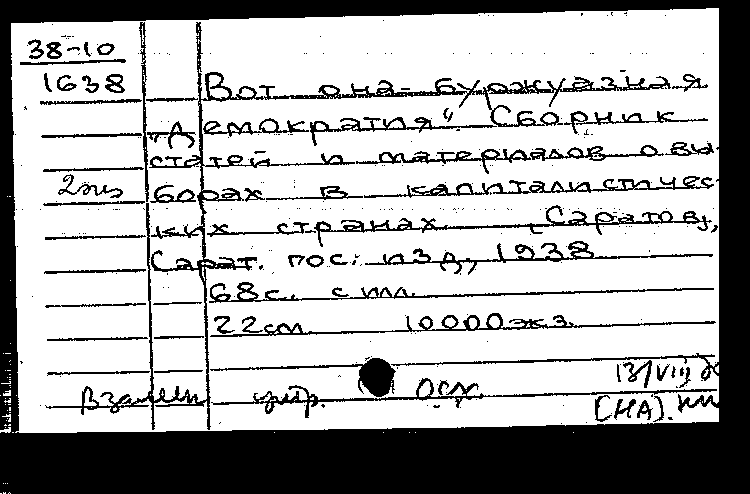 38-10
1638 Вот она-буржуазная
„Демократия“ Сборник
статей и материалов о вы-
2 экз борах в капиталистичес-
ких странах. [Саратов],
Сарат. гос. изд, 1938
68с. с илл.
22см. 10000экз.
13/VIII
Взамен утр. осн.
(НА).